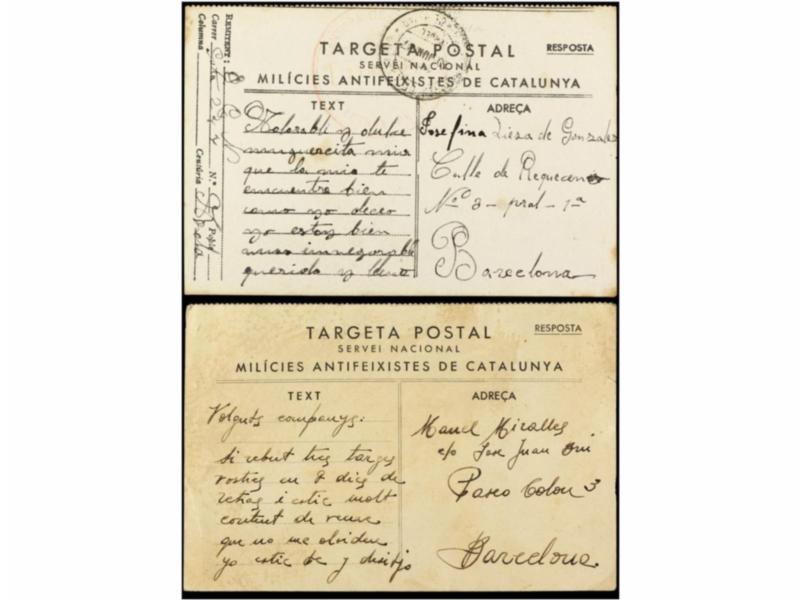 REMITENT:
Carrer
N.º
Poble
Columna
Centúria
TARGETA POSTAL
RESPOSTA
SERVEI NACIONAL
MILÍCIES ANTIFEIXISTES DE CATALUNYA
TEXT
Adorable y dulce
muguercita mia
que la mia te
encuentre bien
como yo deceo
yo estoy bien
querida y
ADREÇA
Josefina Lieza de Gonzalez
Calle de Requecens
Nº 8 - pral - 1ª
Barcelona
TARGETA POSTAL
RESPOSTA
SERVEI NACIONAL
MILÍCIES ANTIFEIXISTES DE CATALUNYA
TEXT
Volguts companys:
Si rebut tres targes
vostres en 8 dies de
retras i estic molt
content de veure
que no me olviden
yo estic be y disitjo
ADREÇA
Manel Miralles
c/o Jose Juan
Paseo Colon 3
Barcelona